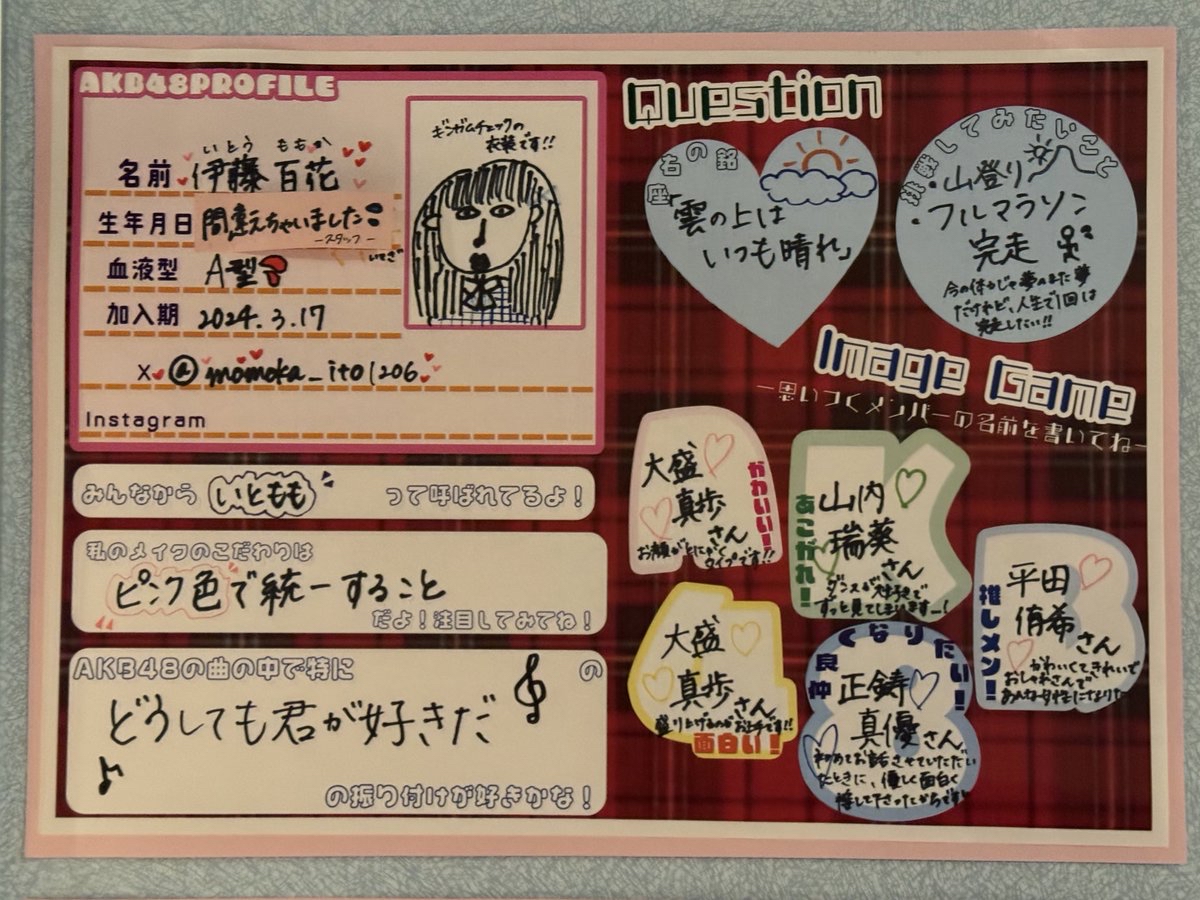 AKB48PROFILE
ギンガムチェックの
衣装です!!
いとう ももか
名前 伊藤 百花
生年月日 間違えちゃいました
-スタッフ-
血液型 A型
加入期 2024.3.17
X @momoka_ito1206
Instagram
みんなから いともも って呼ばれてるよ!
私のメイクのこだわりは
ピンク色で統一すること
だよ!注目してみてね!
AKB48の曲の中で特に の
どうしても君が好きだ
の振り付けが好きかな!
Question
座右の銘
「雲の上は
いつも晴れ」
挑戦してみたいこと
・山登り
・フルマラソン
完走
今の体力じゃ夢のまた夢
だけれど、人生で1回は
完走したい!!
Image Game
ー思いつくメンバーの名前を書いてねー
大盛
真歩
さん
お顔がとにかく
タイプです!!
かわいい!
山内
瑞葵
さん
ダンスが大好きで
ずっと見てしまいますー!
あこがれ!
平田
侑希
さん
かわいくてきれいで
おしゃれさんで
推しメン!
大盛
真歩さん
盛り上げるのがお上手です!!
面白い!
仲良くなりたい!
正鋳
真優さん
初めてお話させていただい
たときに、優しく面白く
接して下さったからです!